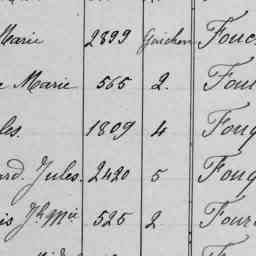 Marie 2899 Guichen Fouc
e Marie 565 2. Fou
les. 1809 4 Foug
ard. Jules. 2420 5 Foug
is Jh Mie 525 2 Four